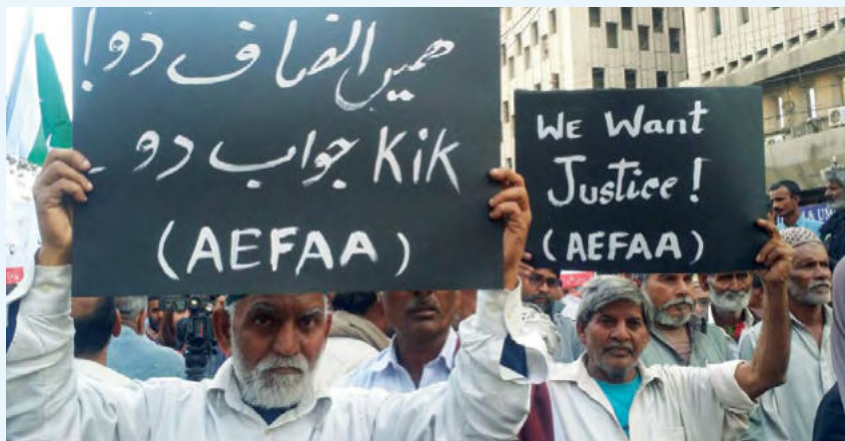 ہمیں انصاف دو!
KiK جواب دو۔
(AEFAA)
WE Want
Justice!
(AEFAA)